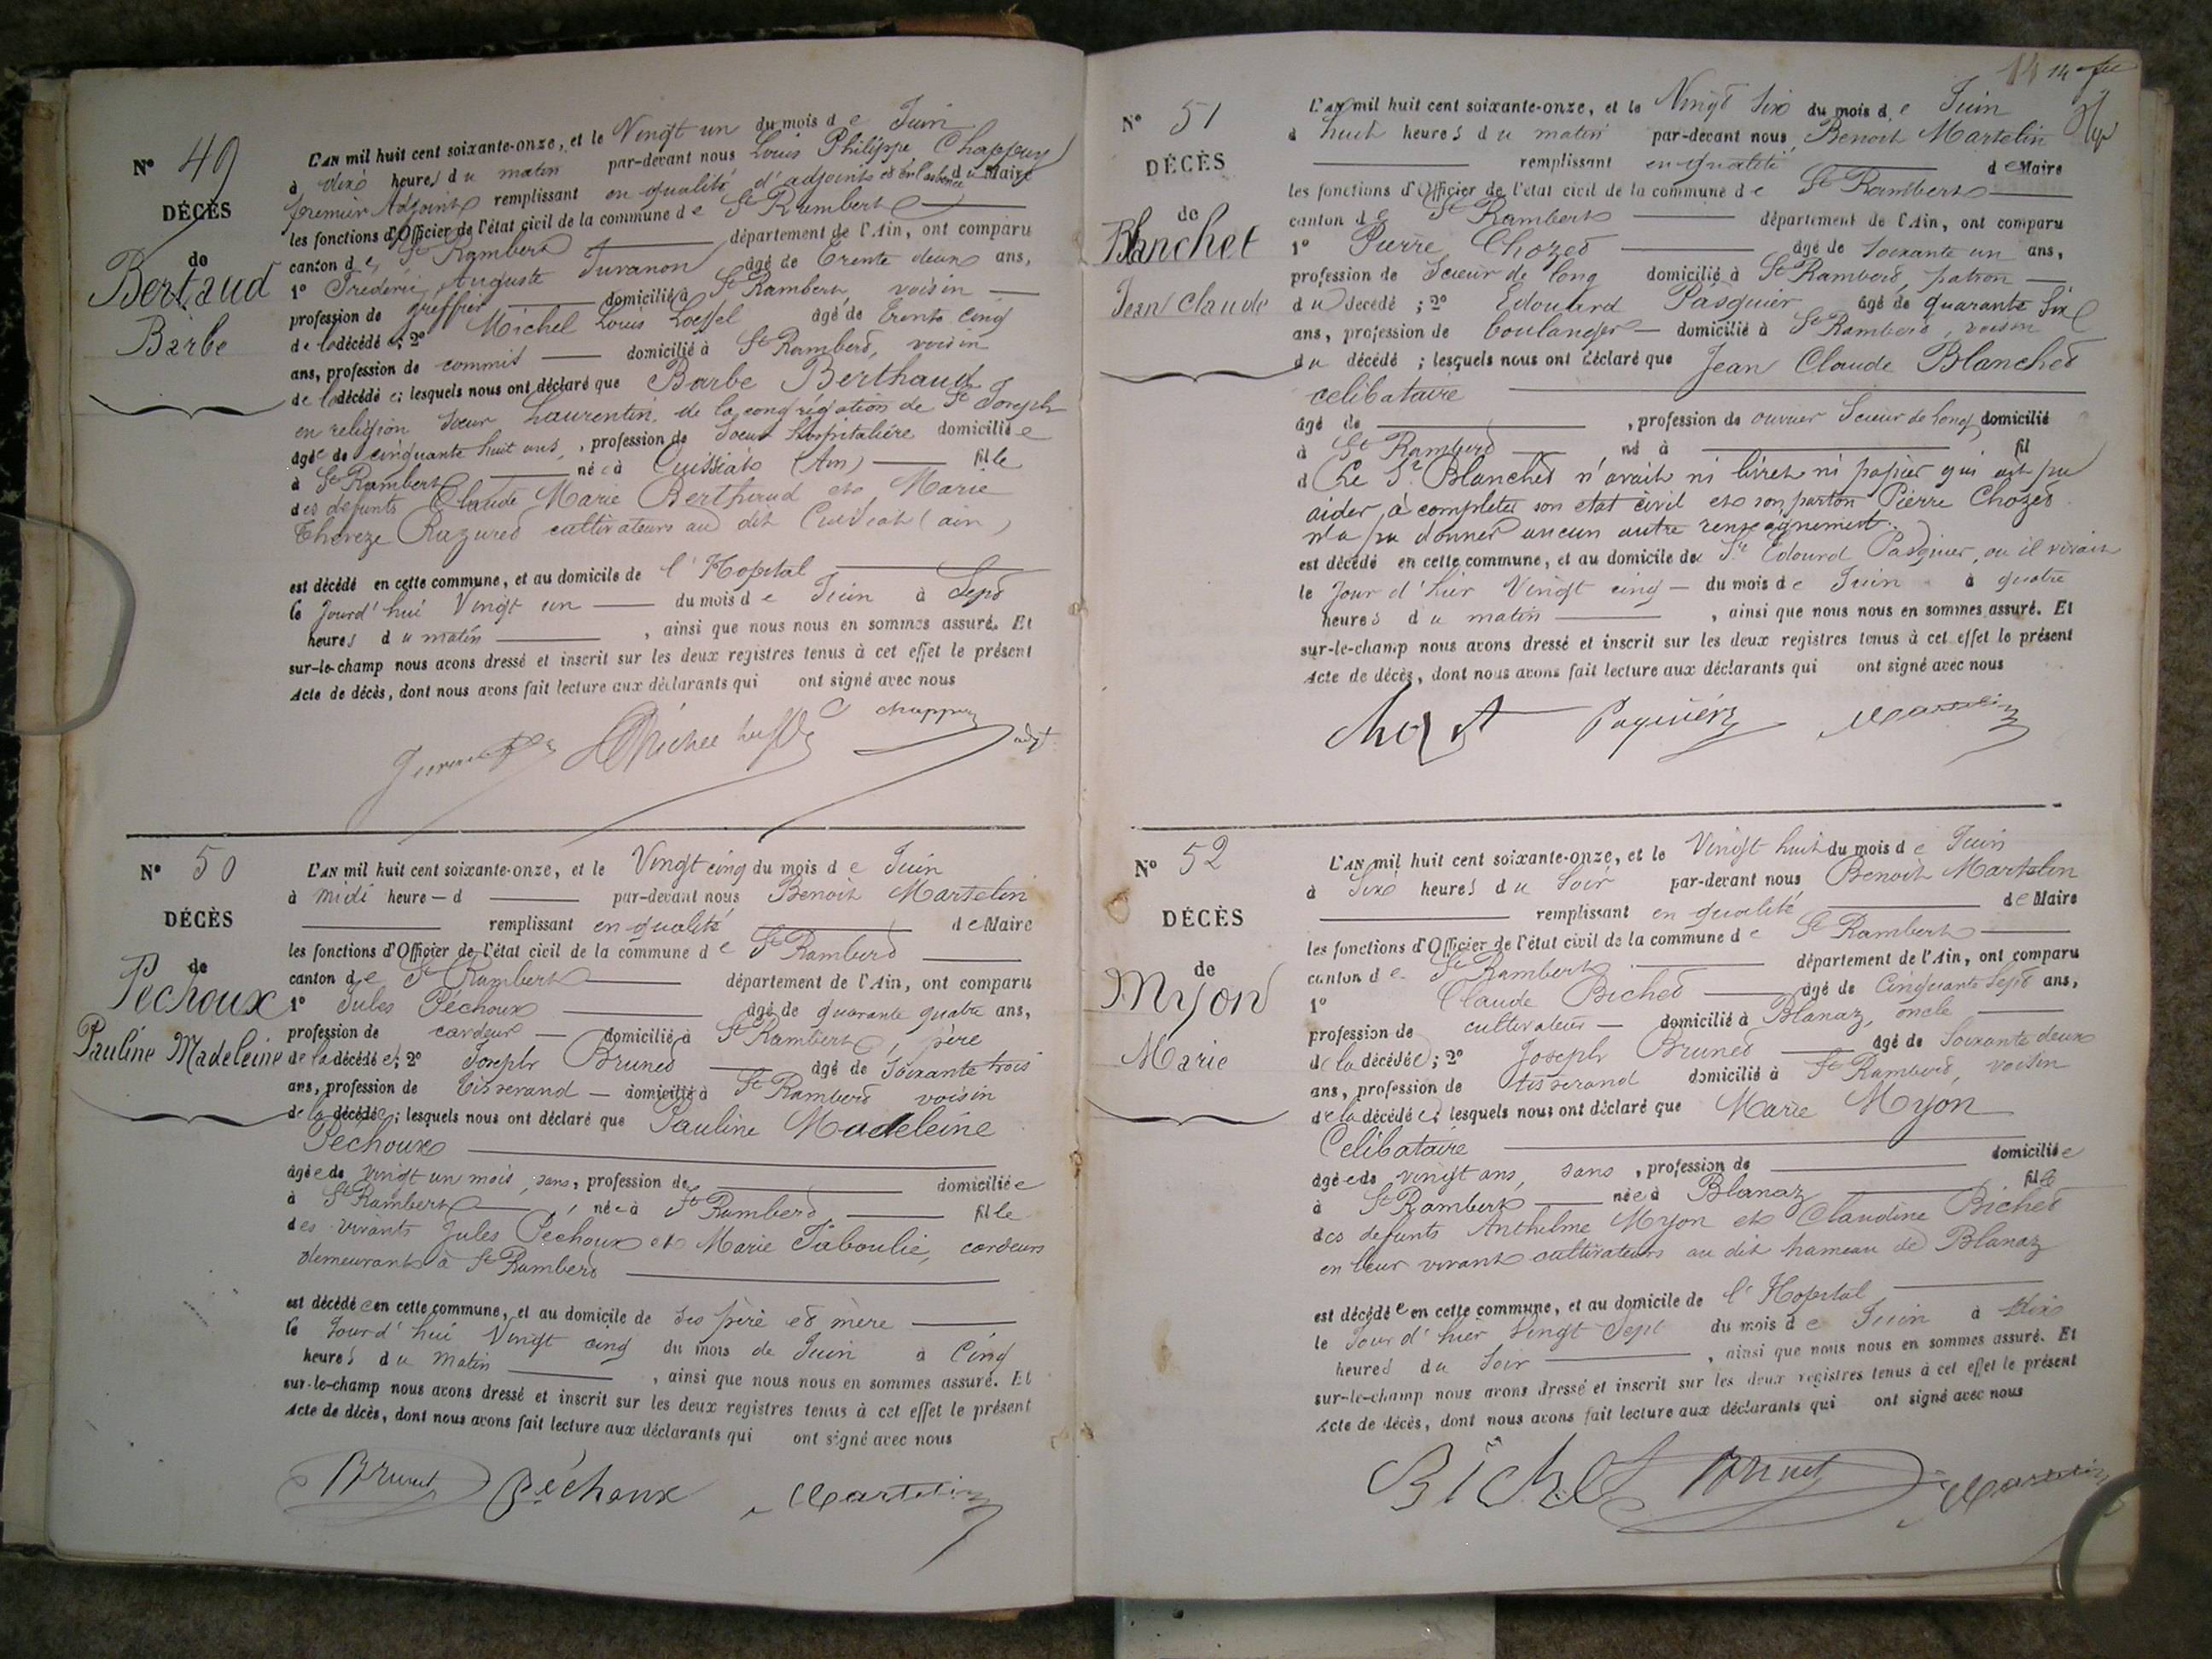 N° 49
DÉCÈS
de
Bertaud
Barbe
L'AN mil huit cent soixante-onze, et le Vingt un du mois de Juin
à dix heures du matin par-devant nous Louis Philippe Chappuy
premier Adjoint remplissant en qualité d'adjoint et en l'absence du Maire
les fonctions d'Officier de l'état civil de la commune de St Rambert
canton de St Rambert département de l'Ain, ont comparu
1° Frédéric Auguste Juvanon âgé de trente deux ans,
profession de greffier domicilié à St Rambert, voisin
de la décédée; 2° Michel Louis Loeffel âgé de trente cinq
ans, profession de commis domicilié à St Rambert, voisin
de la décédée; lesquels nous ont déclaré que Barbe Berthaud
en religion soeur Laurentin, de la congrégation de St Joseph
âgée de cinquante huit ans, profession de Soeur hospitalière domiciliée
à St Rambert née à Cuisiat (Ain) fille
des défunts Claude Marie Berthaud et Marie
Thereze Razured cultivateurs au dit Cuisiat (ain)
est décédé en cette commune, et au domicile de l'Hopital
le jourd'hui Vingt un du mois de Juin à Sept
heures du matin, ainsi que nous nous en sommes assuré. Et
sur-le-champ nous avons dressé et inscrit sur les deux registres tenus à cet effet le présent
Acte de décès, dont nous avons fait lecture aux déclarants qui ont signé avec nous
chappuy
adjt
N° 50
DÉCÈS
de
Péchoux
Pauline Madeleine
L'AN mil huit cent soixante-onze, et le Vingt cinq du mois de Juin
à midi heure d par-devant nous Benoit Martelin
remplissant en qualité de Maire
les fonctions d'Officier de l'état civil de la commune de St Rambert
canton de St Rambert département de l'Ain, ont comparu
1° Jules Péchoux âgé de quarante quatre ans,
profession de cardeur domicilié à St Rambert, père
de la décédée; 2° Joseph Brunet âgé de Soixante trois
ans, profession de tisserand domicilié à St Rambert voisin
de la décédée; lesquels nous ont déclaré que Pauline Madeleine
Péchoux
âgée de vingt un mois, sans, profession de domiciliée
à St Rambert, née à St Rambert fille
des vivants Jules Péchoux et Marie Taboulie, cardeurs
demeurants à St Rambert
est décédée en cette commune, et au domicile de ses père et mère
le Jourd'hui Vingt cinq du mois de Juin à Cinq
heures du Matin, ainsi que nous nous en sommes assuré. Et
sur-le-champ nous avons dressé et inscrit sur les deux registres tenus à cet effet le présent
Acte de décès, dont nous avons fait lecture aux déclarants qui ont signé avec nous
Brunet Péchoux Martelin
14 14
N° 51
DÉCÈS
de
Blanchet
Jean Claude
L'AN mil huit cent soixante-onze, et le Vingt Six du mois de Juin
à huit heures du matin par-devant nous Benoit Martelin
remplissant en qualité de Maire
les fonctions d'Officier de l'état civil de la commune de St Rambert
canton de St Rambert département de l'Ain, ont comparu
1° Pierre Chozet âgé de Soixante un ans,
profession de Scieur de long domicilié à St Rambert, patron
du décédé; 2° Edouard Pasquier âgé de quarante Six
ans, profession de boulanger domicilié à St Rambert, voisin
du décédé; lesquels nous ont déclaré que Jean Claude Blanchet
celibataire
âgé de, profession de ouvrier Scieur de long domicilié
à St Rambert, né à fil
d Le Sr Blanchet n'avait ni livret ni papier qui ait pu
aider à completer son etat civil et son parton Pierre Chozet
n'a pu donner aucun autre renseignement.
est décédé en cette commune, et au domicile de Sr Edouard Pasquier, ou il vivait
le Jour d'hier Vingt cinq du mois de Juin à quatre
heures du matin, ainsi que nous nous en sommes assuré. Et
sur-le-champ nous avons dressé et inscrit sur les deux registres tenus à cet effet le présent
Acte de décès, dont nous avons fait lecture aux déclarants qui ont signé avec nous
Chozet Paquiér Martelin
N° 52
DÉCÈS
de
Myon
Marie
L'AN mil huit cent soixante-onze, et le Vingt huit du mois de Juin
à Six heures du Soir par-devant nous Benoit Martelin
remplissant en qualité de Maire
les fonctions d'Officier de l'état civil de la commune de St Rambert
canton de St Rambert département de l'Ain, ont comparu
1° Claude Bichet âgé de Cinquante Sept ans,
profession de cultivateur domicilié à Blanaz, oncle
de la décédée; 2° Joseph Brunet âgé de Soixante deux
ans, profession de tisserand domicilié à St Rambert, voisin
de la décédée; lesquels nous ont déclaré que Marie Myon
Celibataire
âgée de vingt ans, sans, profession de domiciliée
à St Rambert née à Blanaz fille
des defunts Anthelme Myon et Claudine Bichet
en leur vivant cultivateurs au dit hameau de Blanaz
est décédée en cette commune, et au domicile de l'Hopital
le Jour d'hier Vingt Sept du mois de Juin à dix
heures du Soir, ainsi que nous nous en sommes assuré. Et
sur-le-champ nous avons dressé et inscrit sur les deux registres tenus à cet effet le présent
Acte de décès, dont nous avons fait lecture aux déclarants qui ont signé avec nous
Bichet Brunet Martelin